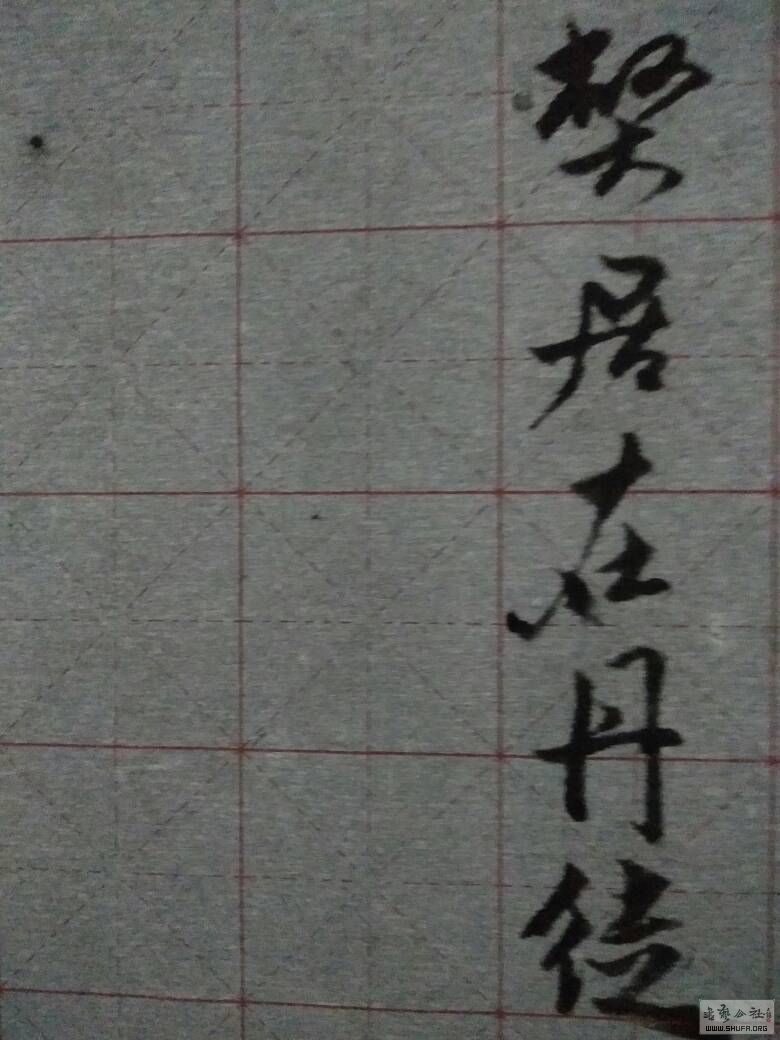 弊居在丹徒
书艺公社
WWW.SHUFA.ORG